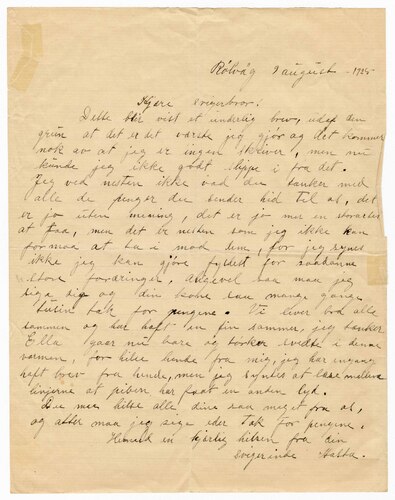 Rölvåg 9 august - 1925
Kjere svigerbror!
Dette blir vist et underlig brev, utaf den
grün at det er det værste jeg gjör og det kommer
nok av at jeg er ingen skriver, men nu
künde jeg ikke godt slippe i fra det.
Jeg ved nesten ikke vad du tænker med
alle de penger du sender hid til os, det
er jo uten mening, det er jo mer en stvarter
at faa, men det er nesten som jeg ikke kan
formaa at ta i mod dem, for jeg synes
ikke jeg kan gjöre fyldest for saadanne
store fordringer. Angevel saa maa jeg
sige dig og din kone saa mange gange
tusin tak for pengene. Vi liver bra alle
sammen og har haft en fin sommer, jeg tænker
Ella gaar nu bare og törker svette i denne
varmen, du hilse hende fra mig, jeg har engang
haft brev fra hende, men jeg syntes at læse mellem
linjerne at piben har faat en anden lyd.
Du maa hilse alle dine saa meget fra os,
og atter maa jeg sige eder tak for pengene.
Hermed en hjertlig hilsen fra din
svigerinde